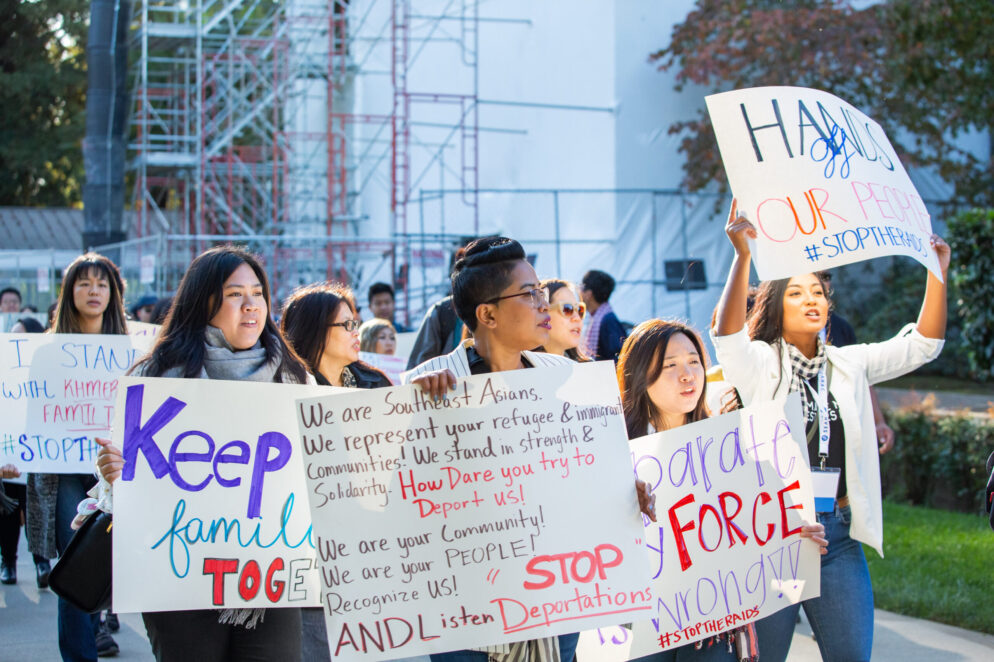 I STAND
WITH KHMER
#STOPTH
Keep
famili
TOGE
We are Southeast Asians.
We represent your refugee & immigrant
Communities! We stand in strength &
Solidarity. How Dare you try to
Deport us!
We are your Community!
We are your PEOPLE!
Recognize US!
"STOP"
AND Listen Deportations
parate
FORCE
is wrong!!
#STOPTHERAIDS
HANDS
off
OUR PEOPLE
#STOPTHERAIDS